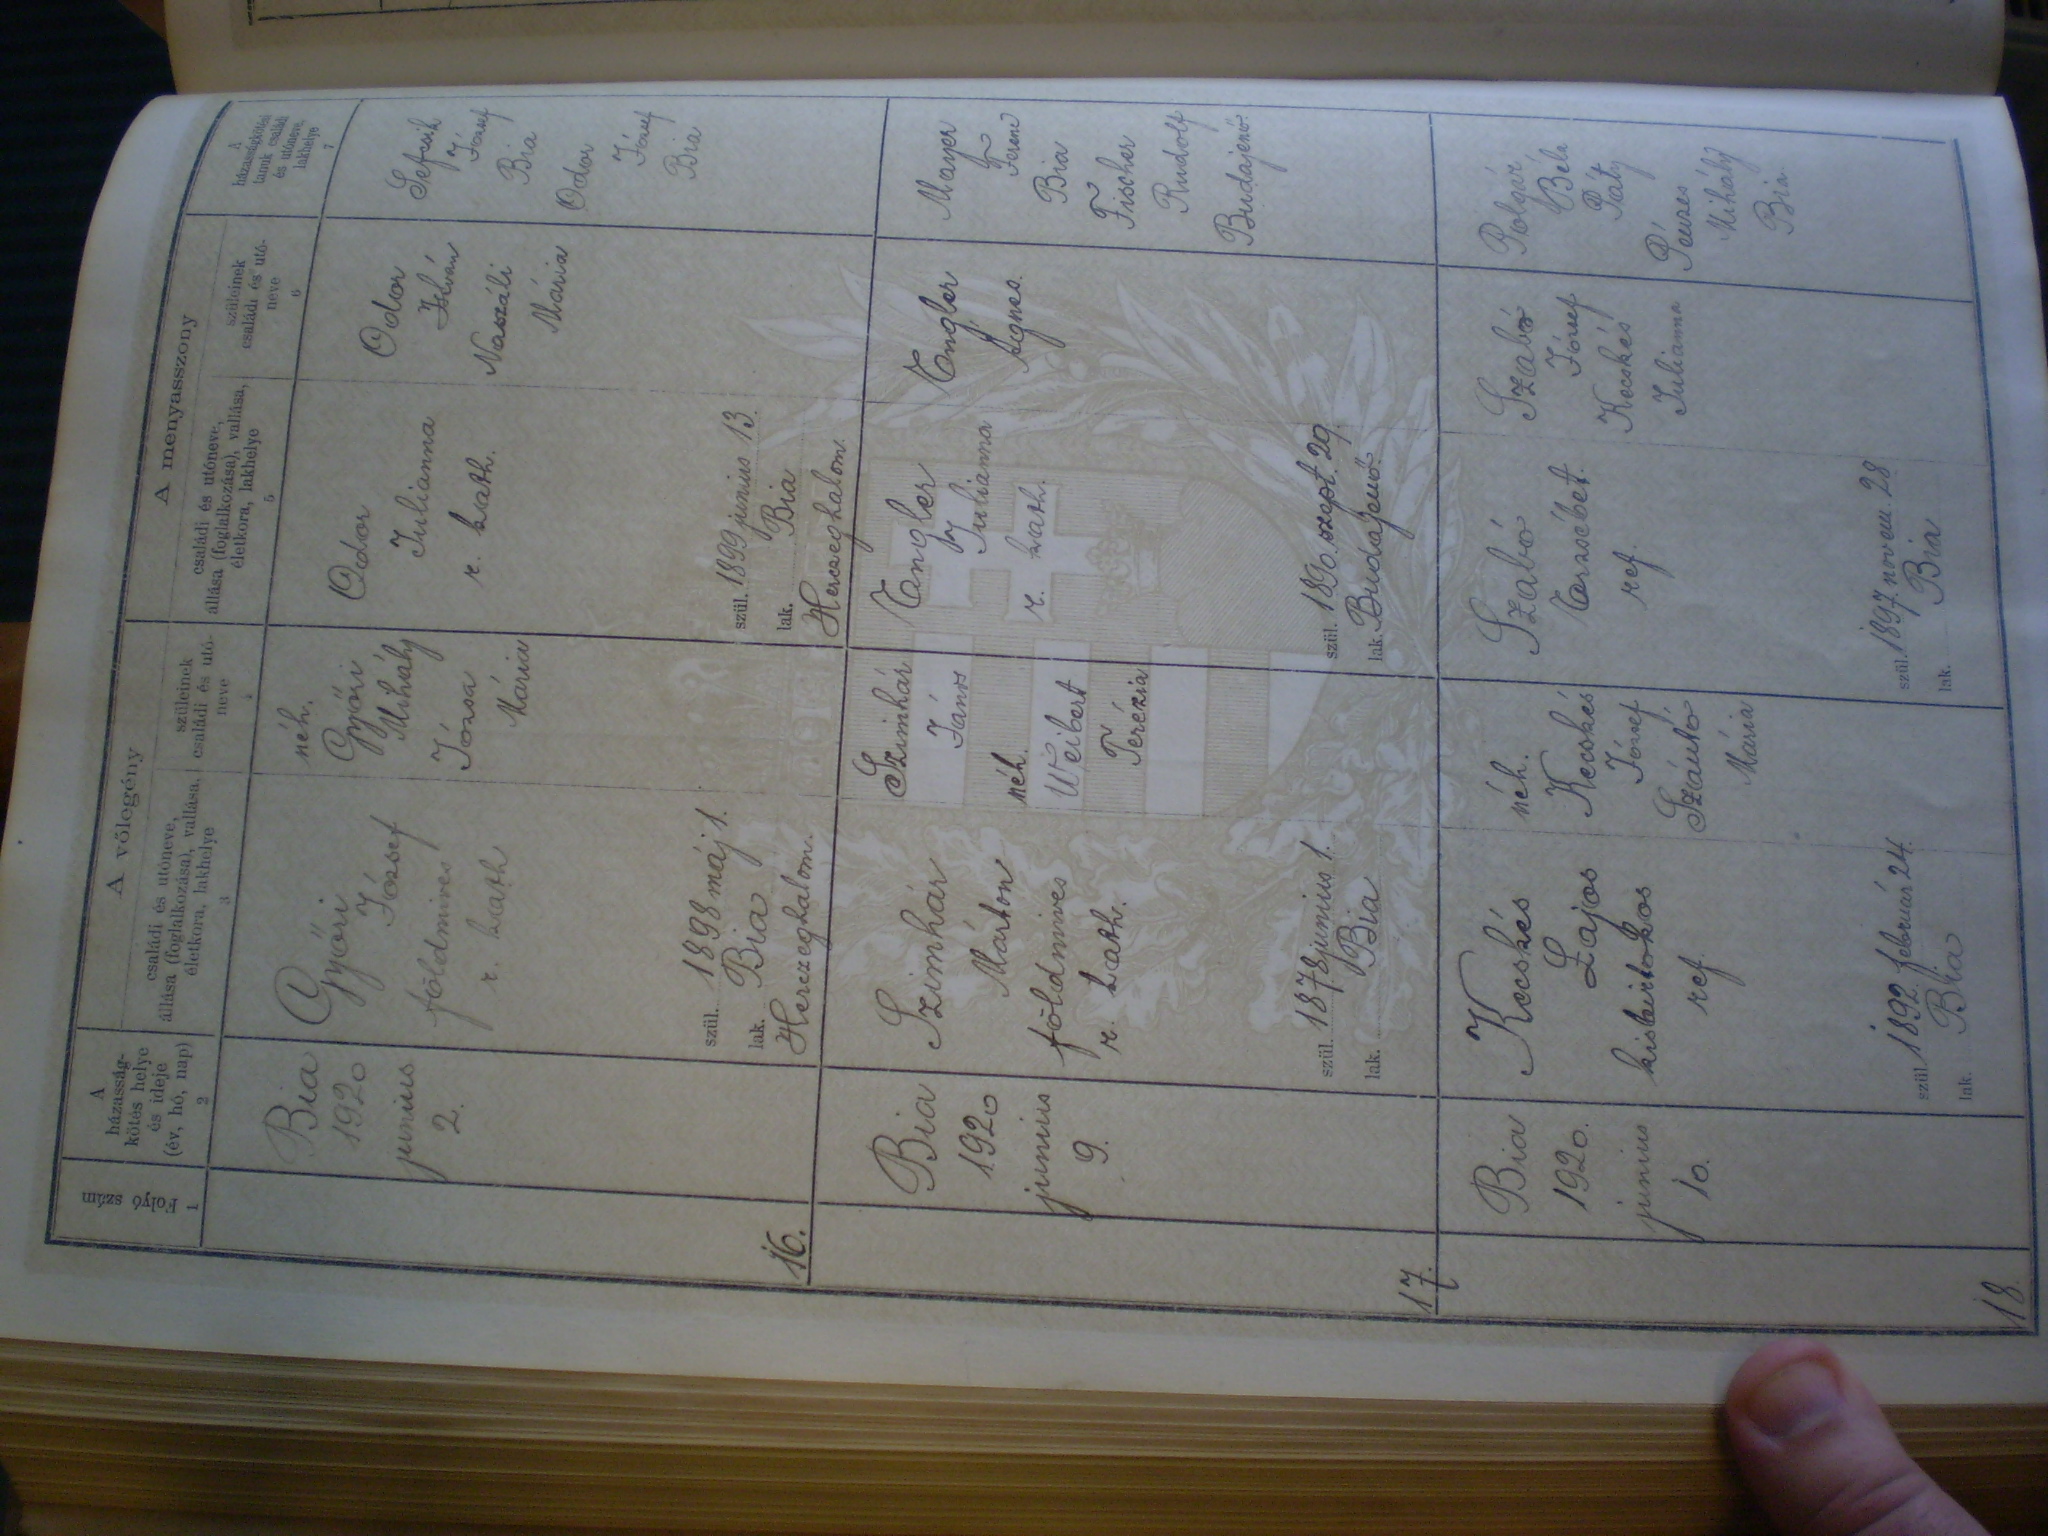 1
Folyó szám
A
házasság-
kötés helye
és ideje
(év, hó, nap)
2
A vőlegény
családi és utóneve,
állása (foglalkozása), vallása,
életkora, lakhelye
3
szüleinek
családi és utó-
neve
A menyasszony
családi és utóneve,
állása (foglalkozása), vallása,
életkora, lakhelye
5
szüleinek
családi és utó-
neve
6
A
házasságkötési
tanuk családi
és utóneve,
lakhelye
7
16.
Bia
1920
junius
2.
Győri
József
földmives
r. kath
szül. 1898 máj 1.
Bia
lak.
Herczeghalom.
néh.
Győri
Mihály
Józsa
Mária
Odor
Julianna
r. kath.
szül. 1899 junius 13.
Bia
lak.
Herczeghalom.
Odor
István
Naszáli
Mária
József
Bia
Odor
József
Bia
17.
Bia
1920
junius
9.
Szimhár
Márton
földmives
r. kath.
szül. 1878 junius 1.
Bia
lak.
Szimhár
János
néh.
Weibert
Terézia
Tengler
Julianna
r. kath.
szül. 1890. szept. 29.
lak. Budajenő
Tengler
Ágnes.
Mayer
Ferenc
Bia
Fischer
Rudolf
Budajenő.
18.
Bia
1920.
junius
10.
Kecskés
Lajos
kisbirtokos
ref.
szül. 1892. február 24.
Bia
lak.
néh.
Kecskés
József
Szántó
Mária
Szabó
Erzsébet.
ref.
szül. 1897. novem 28
Bia
lak
Szabó
József
Kecskés
Julianna
Polgár
Béla
Páty
Pénzes
Mihály
Bia.